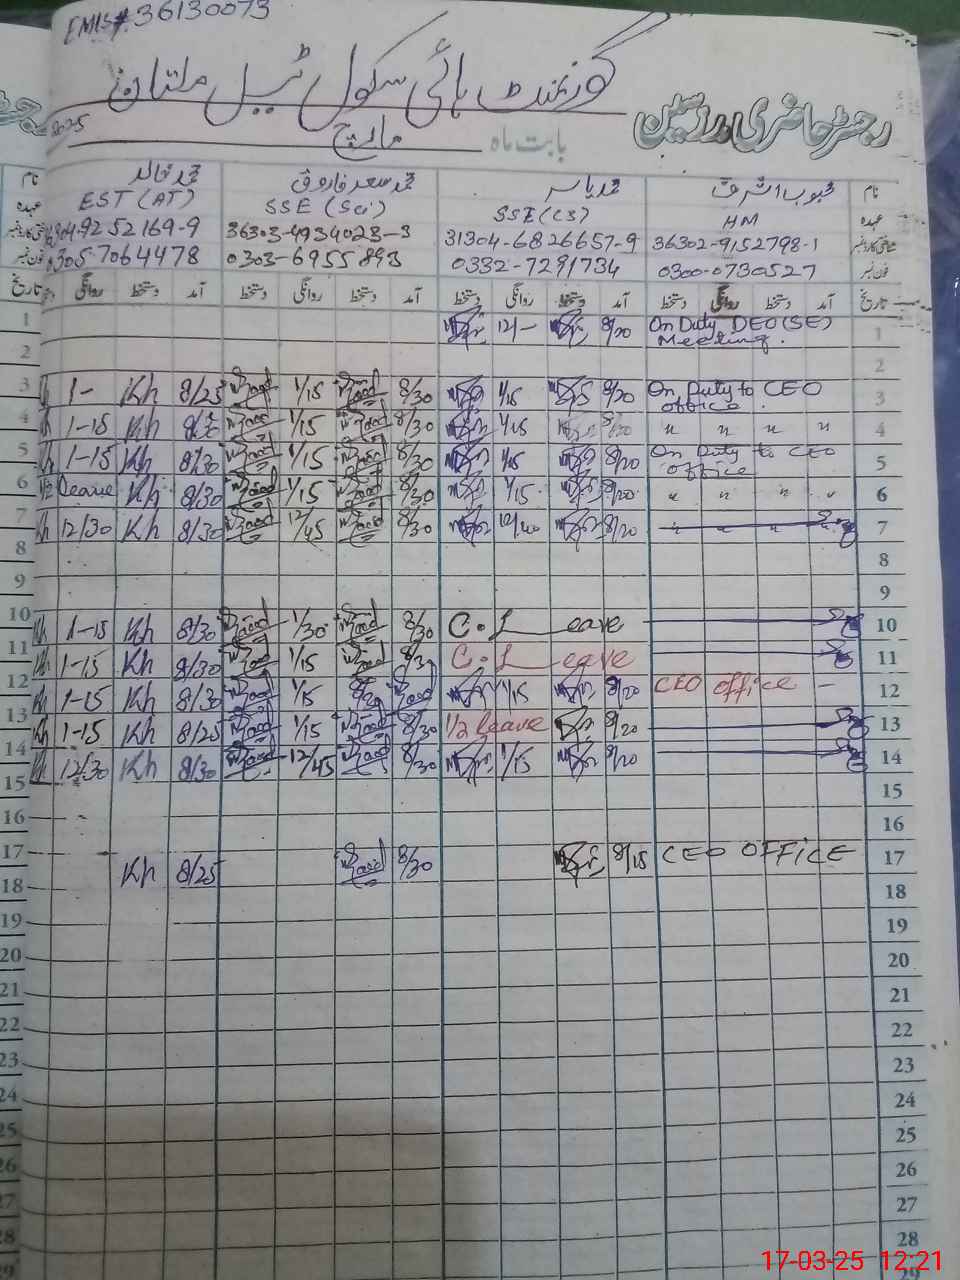 EMIS# 36130073
گورنمنٹ ہائی سکول ٹبل ملتان
رجسٹر حاضری مدرسین
بابت ماہ مارچ 2025
نام محبوب اشرف محمد یاسر محمد سعد فاروق محمد خالد نام
عہدہ HM SSE (CS) SSE (Sci) EST (AT) عہدہ
36302-9152798-1 31304-6826657-9 36303-4934023-3 9252169-9
فون نمبر 0300-0730527 0332-7291734 0303-6955893 0305-7064478 فون نمبر
تاریخ آمد دستخط روانگی دستخط آمد دستخط روانگی دستخط آمد دستخط روانگی دستخط آمد دستخط روانگی تاریخ
1 12/- 8/20 On Duty DEO (SE) Meeting. 1
2 2
3 1- Kh 8/25 1/15 8/30 1/15 8/20 On Duty to CEO office. 3
4 1-15 Kh 8/30 1/15 8/30 1/15 8/20 " " " " 4
5 1-15 Kh 8/30 1/15 8/30 1/15 8/20 On Duty to CEO office 5
6 1/2 Leave Kh 8/30 1/15 8/30 1/15 8/20 " " " " 6
7 Kh 12/30 Kh 8/30 12/45 8/30 12/40 8/20 " " " 7
8 8
9 9
10 Kh 1-15 Kh 8/30 1/30 8/30 C.Leave 10
11 Kh 1-15 Kh 8/30 1/15 8/3 C.Leave 11
12 Kh 1-15 Kh 8/30 1/15 8/30 1/15 8/20 CEO office 12
13 Kh 1-15 Kh 8/25 1/15 8/30 1/2 Leave 8/20 13
14 Kh 12/30 Kh 8/30 12/45 8/30 1/15 8/20 14
15 15
16 16
17 Kh 8/25 8/30 8/15 CEO OFFICE 17
18 18
19 19
20 20
21 21
22 22
23 23
24 24
25 25
26 26
27 27
28 28
29 29
17-03-25 12:21